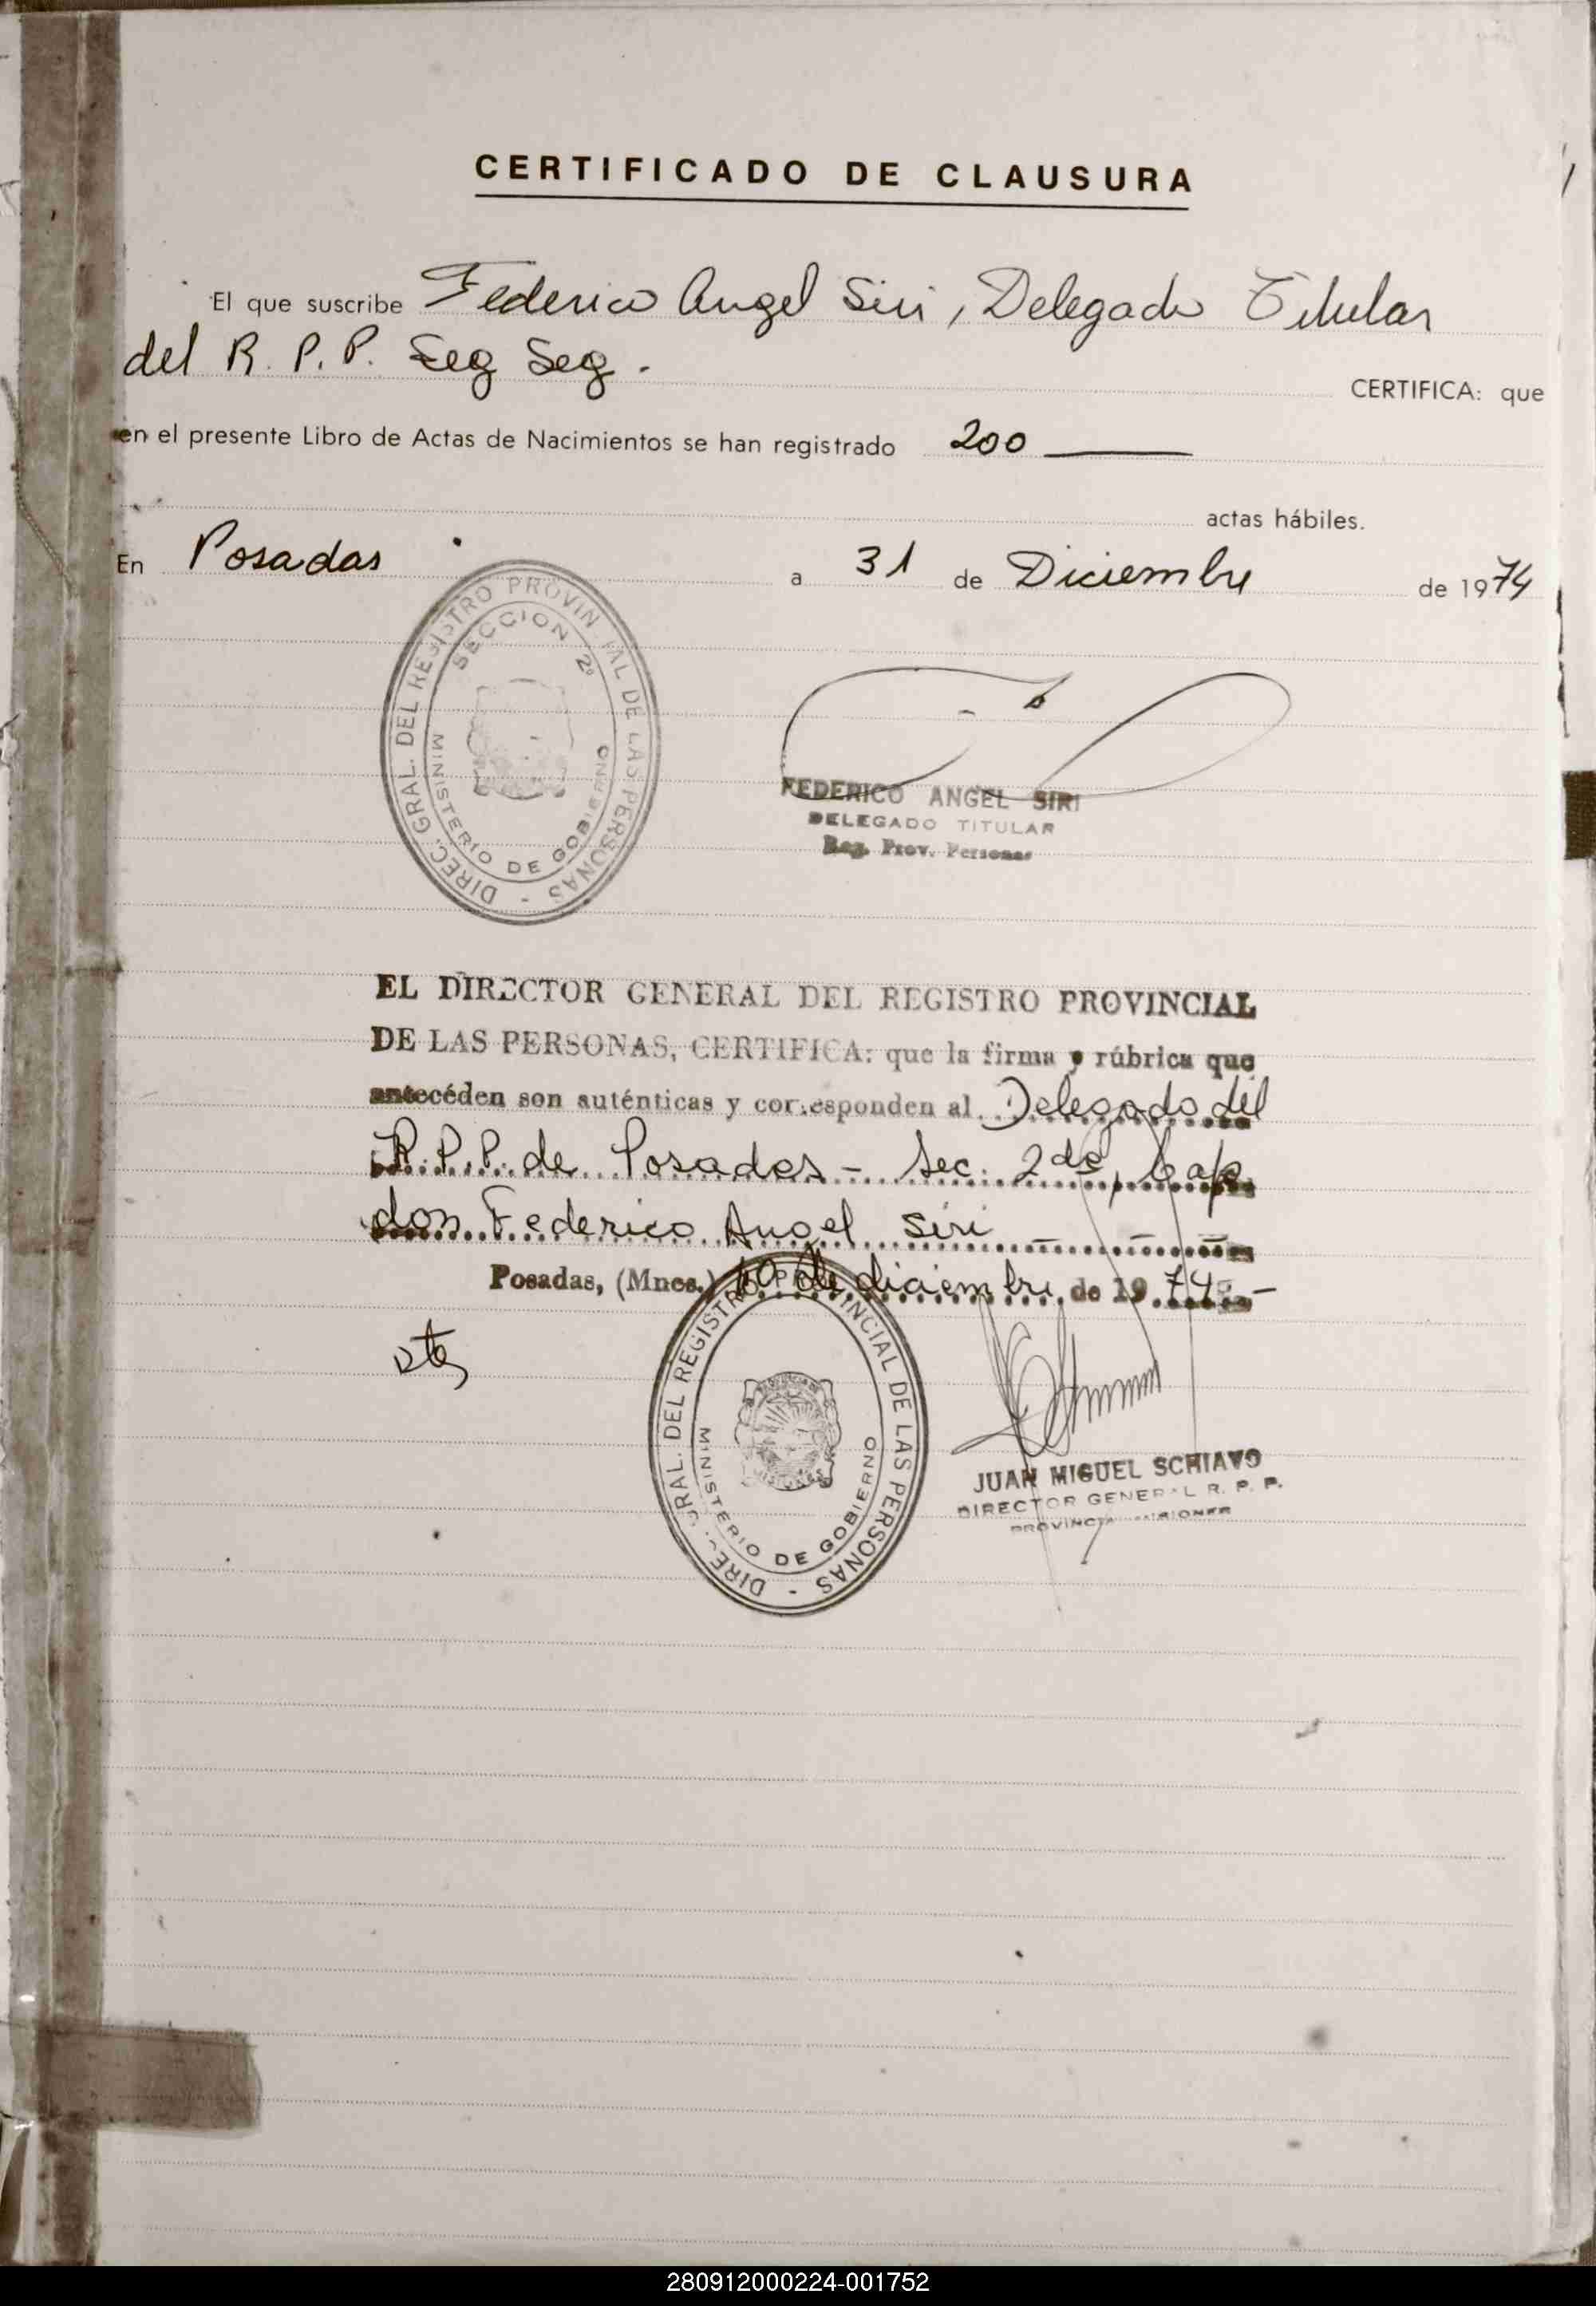 CERTIFICADO DE CLAUSURA
El que suscribe Federico Angel Siri, Delegado Titular
del R. P. P. Seg Seg.
CERTIFICA: que
en el presente Libro de Actas de Nacimientos se han registrado 200
actas hábiles.
En Posadas a 31 de Diciembre de 1974
DIREC. GRAL. DEL REGISTRO PROVINCIAL DE LAS PERSONAS -
SECCION 2º
MINISTERIO DE GOBIERNO
FEDERICO ANGEL SIRI
DELEGADO TITULAR
Reg. Prov. Personas
EL DIRECTOR GENERAL DEL REGISTRO PROVINCIAL
DE LAS PERSONAS, CERTIFICA: que la firma y rúbrica que
antecéden son auténticas y corresponden al Delegado del
R. P. P. de Posadas - Sec. 2da,
don Federico Angel Siri
Posadas, (Mnes.) de diciembre de 1974.-
DIREC. GRAL. DEL REGISTRO PROVINCIAL DE LAS PERSONAS -
MINISTERIO DE GOBIERNO
JUAN MIGUEL SCHIAVO
DIRECTOR GENERAL R. P. P.
PROVINCIA MISIONES
280912000224-001752